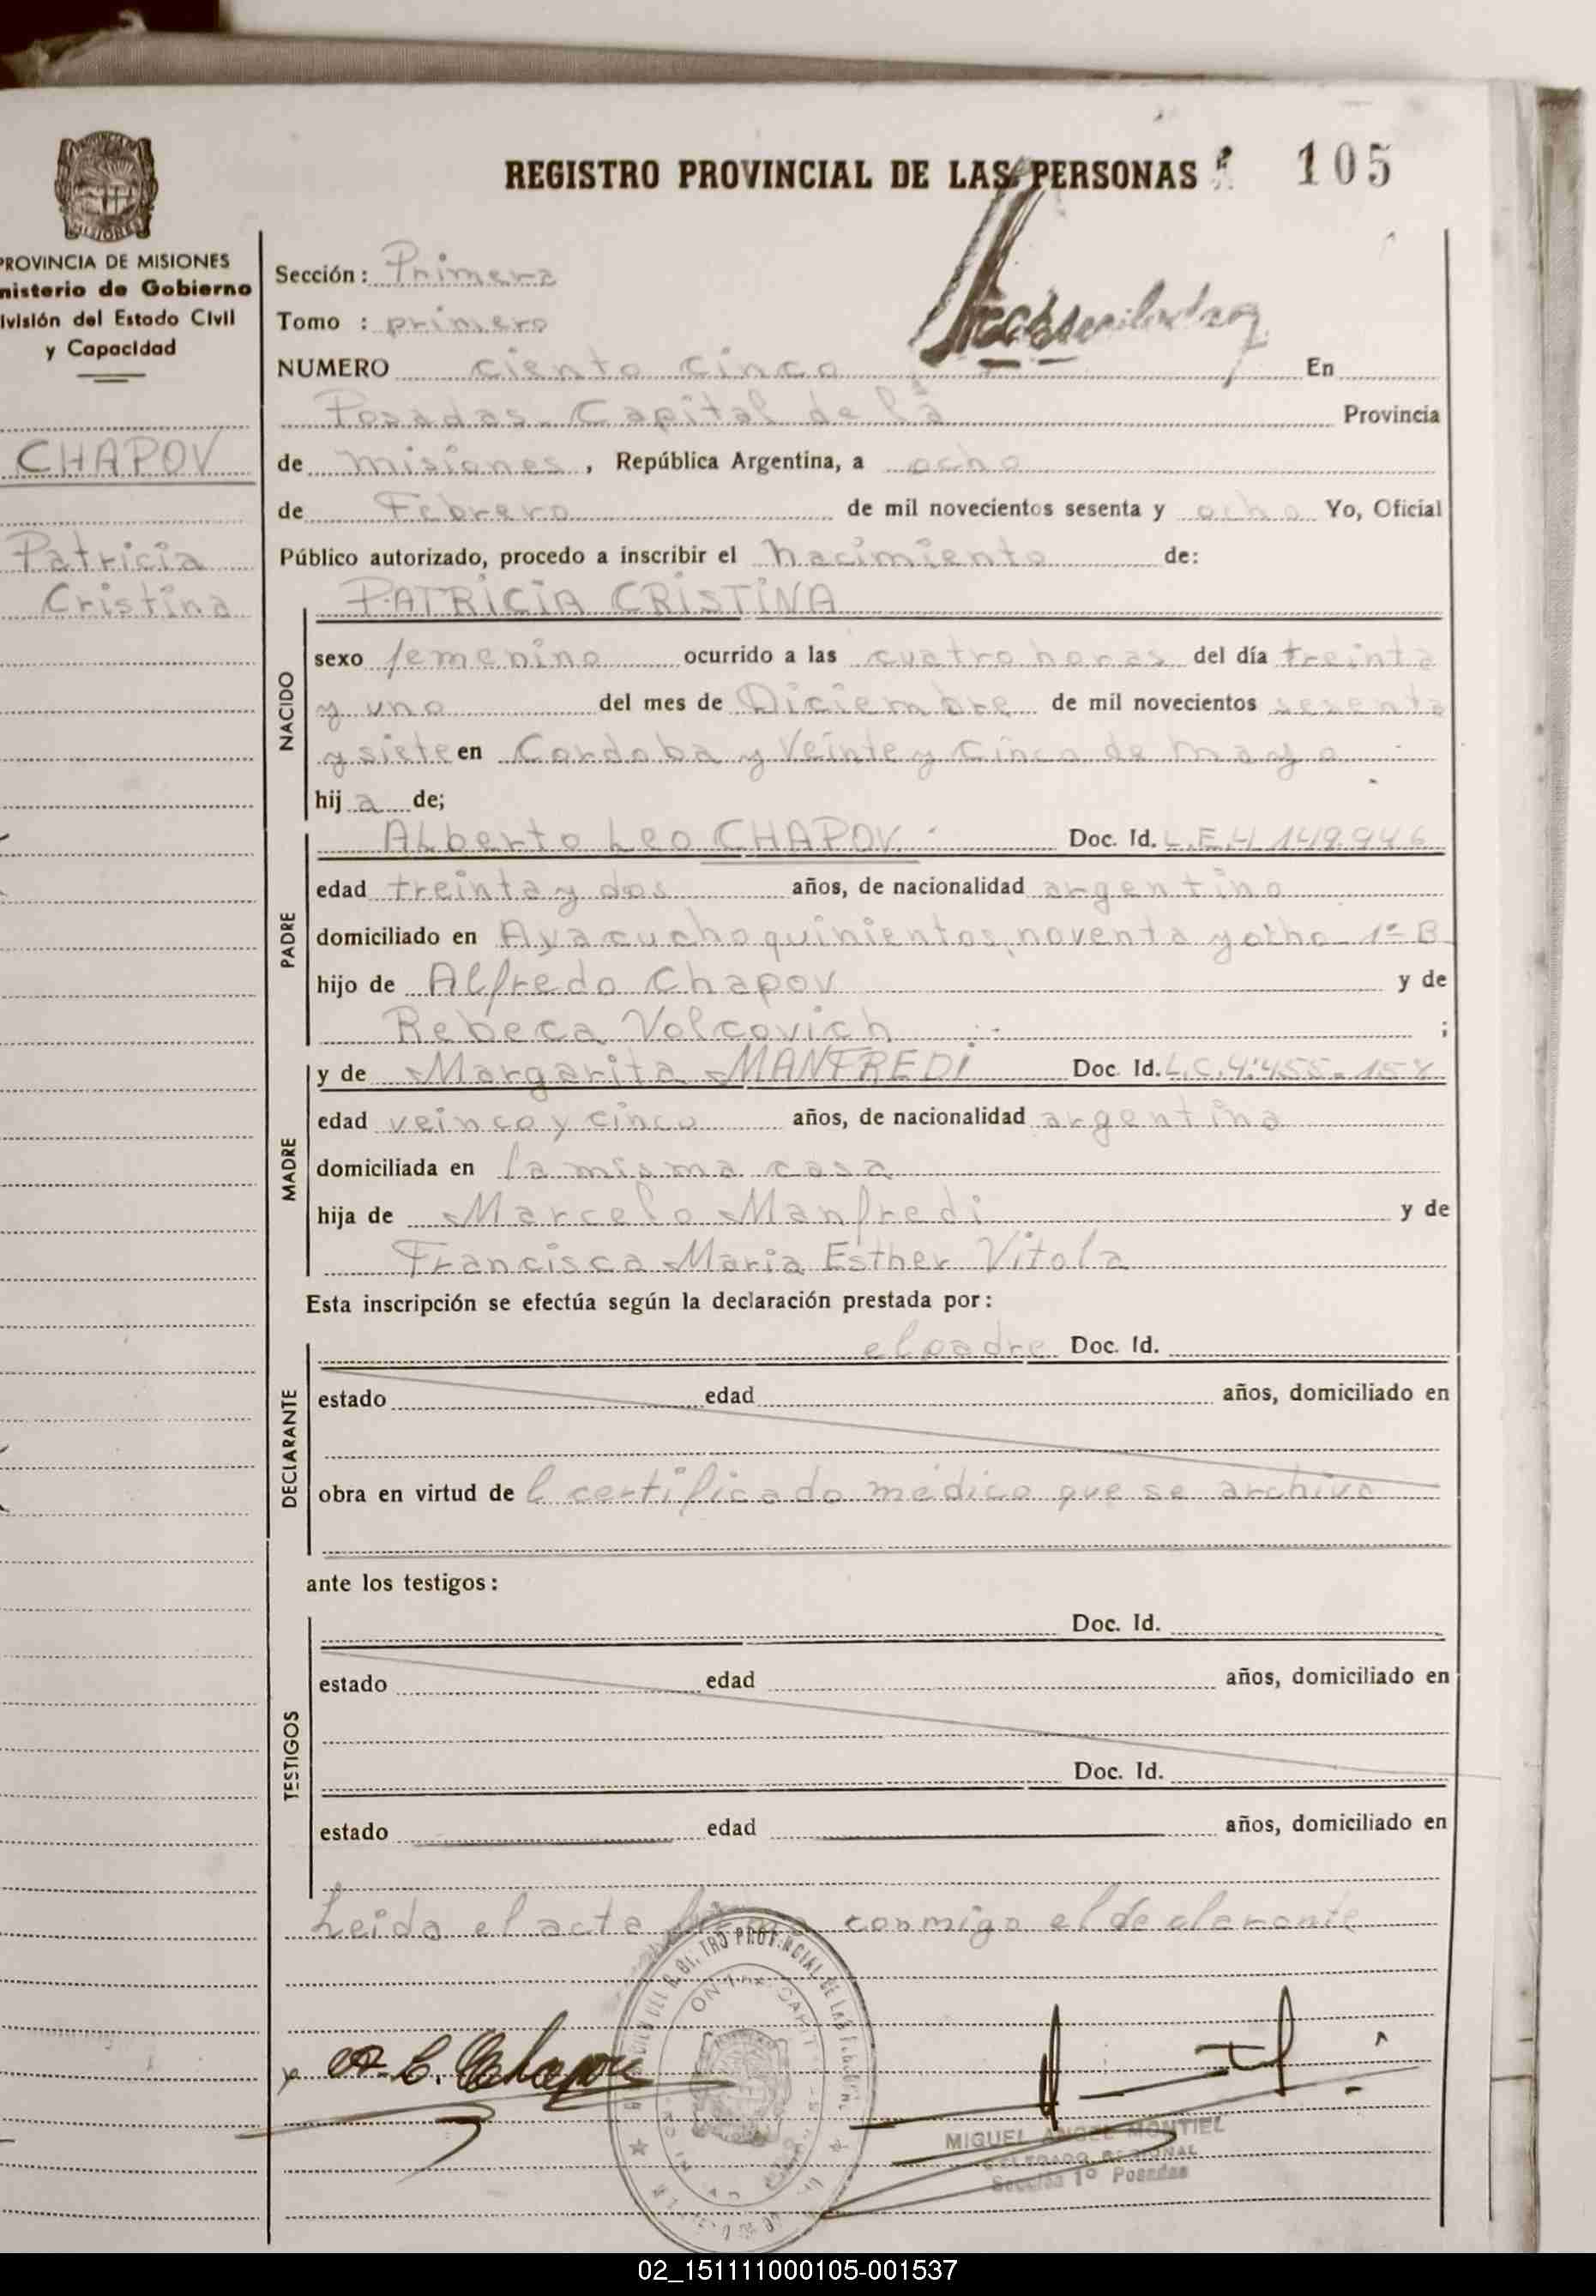 REGISTRO PROVINCIAL DE LAS PERSONAS 105
PROVINCIA DE MISIONES
nisterio de Gobierno
ivisión del Estado Civil
y Capacidad
CHAPOV
Patricia
Cristina
Sección: Primera
Tomo : primero
NUMERO ciento cinco En
Posadas Capital de la Provincia
de Misiones, República Argentina, a ocho
de Febrero de mil novecientos sesenta y ocho Yo, Oficial
Público autorizado, procedo a inscribir el nacimiento de:
NACIDO
PATRICIA CRISTINA
sexo femenino ocurrido a las cuatro horas del día treinta
y uno del mes de Diciembre de mil novecientos sesenta
y siete en Cordoba y Veinte y Cinco de Mayo
hija de;
PADRE
Alberto Leo CHAPOV. Doc. Id. L.E.4 149.946
edad treinta y dos años, de nacionalidad argentino
domiciliado en Ayacucho quinientos noventa y ocho 1º B
hijo de Alfredo Chapov y de
Rebeca Volcovich ;
MADRE
y de Margarita MANFREDI Doc Id. L.C.4.455.
edad veinco y cinco años, de nacionalidad argentina
domiciliada en la misma casa
hija de Marcelo Manfredi y de
Francisca Maria Esther Vitola
Esta inscripción se efectúa según la declaración prestada por:
DECLARANTE
el padre Doc. Id.
estado edad años, domiciliado en
obra en virtud de l certificado médico que se archiva
ante los testigos:
TESTIGOS
Doc. Id.
estado edad años, domiciliado en
Doc. Id.
estado edad años, domiciliado en
Leida el acta firma conmigo el declarante
A. L. Chapov
MIGUEL ANGEL MONTIEL
DELEGADO REGIONAL
Sección 1º Posadas
02_151111000105-001537